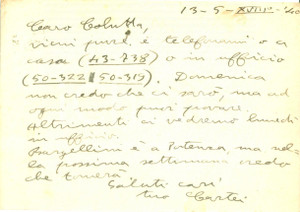 13-5-XVIII-'40
Caro Colutta,
vieni pure, e telefonami o a
casa (43-738) o in ufficio
(50-322 50-313). Domenica
non credo che ci sarò, ma ad
ogni modo puoi provare.
Altrimenti ci vedremo lunedì
in ufficio.
Bargellini è a Potenza, ma nel-
la prossima settimana credo
che tornerà
Saluti cari
tuo